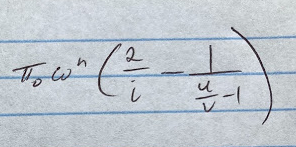 π₀ωⁿ(2/i − 1/(u/v − 1))